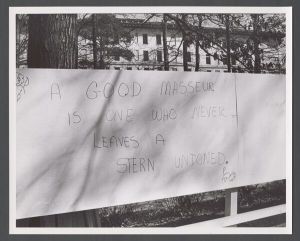 A GOOD MASSEUR
IS ONE WHO NEVER
LEAVES A
STERN UNTONED.